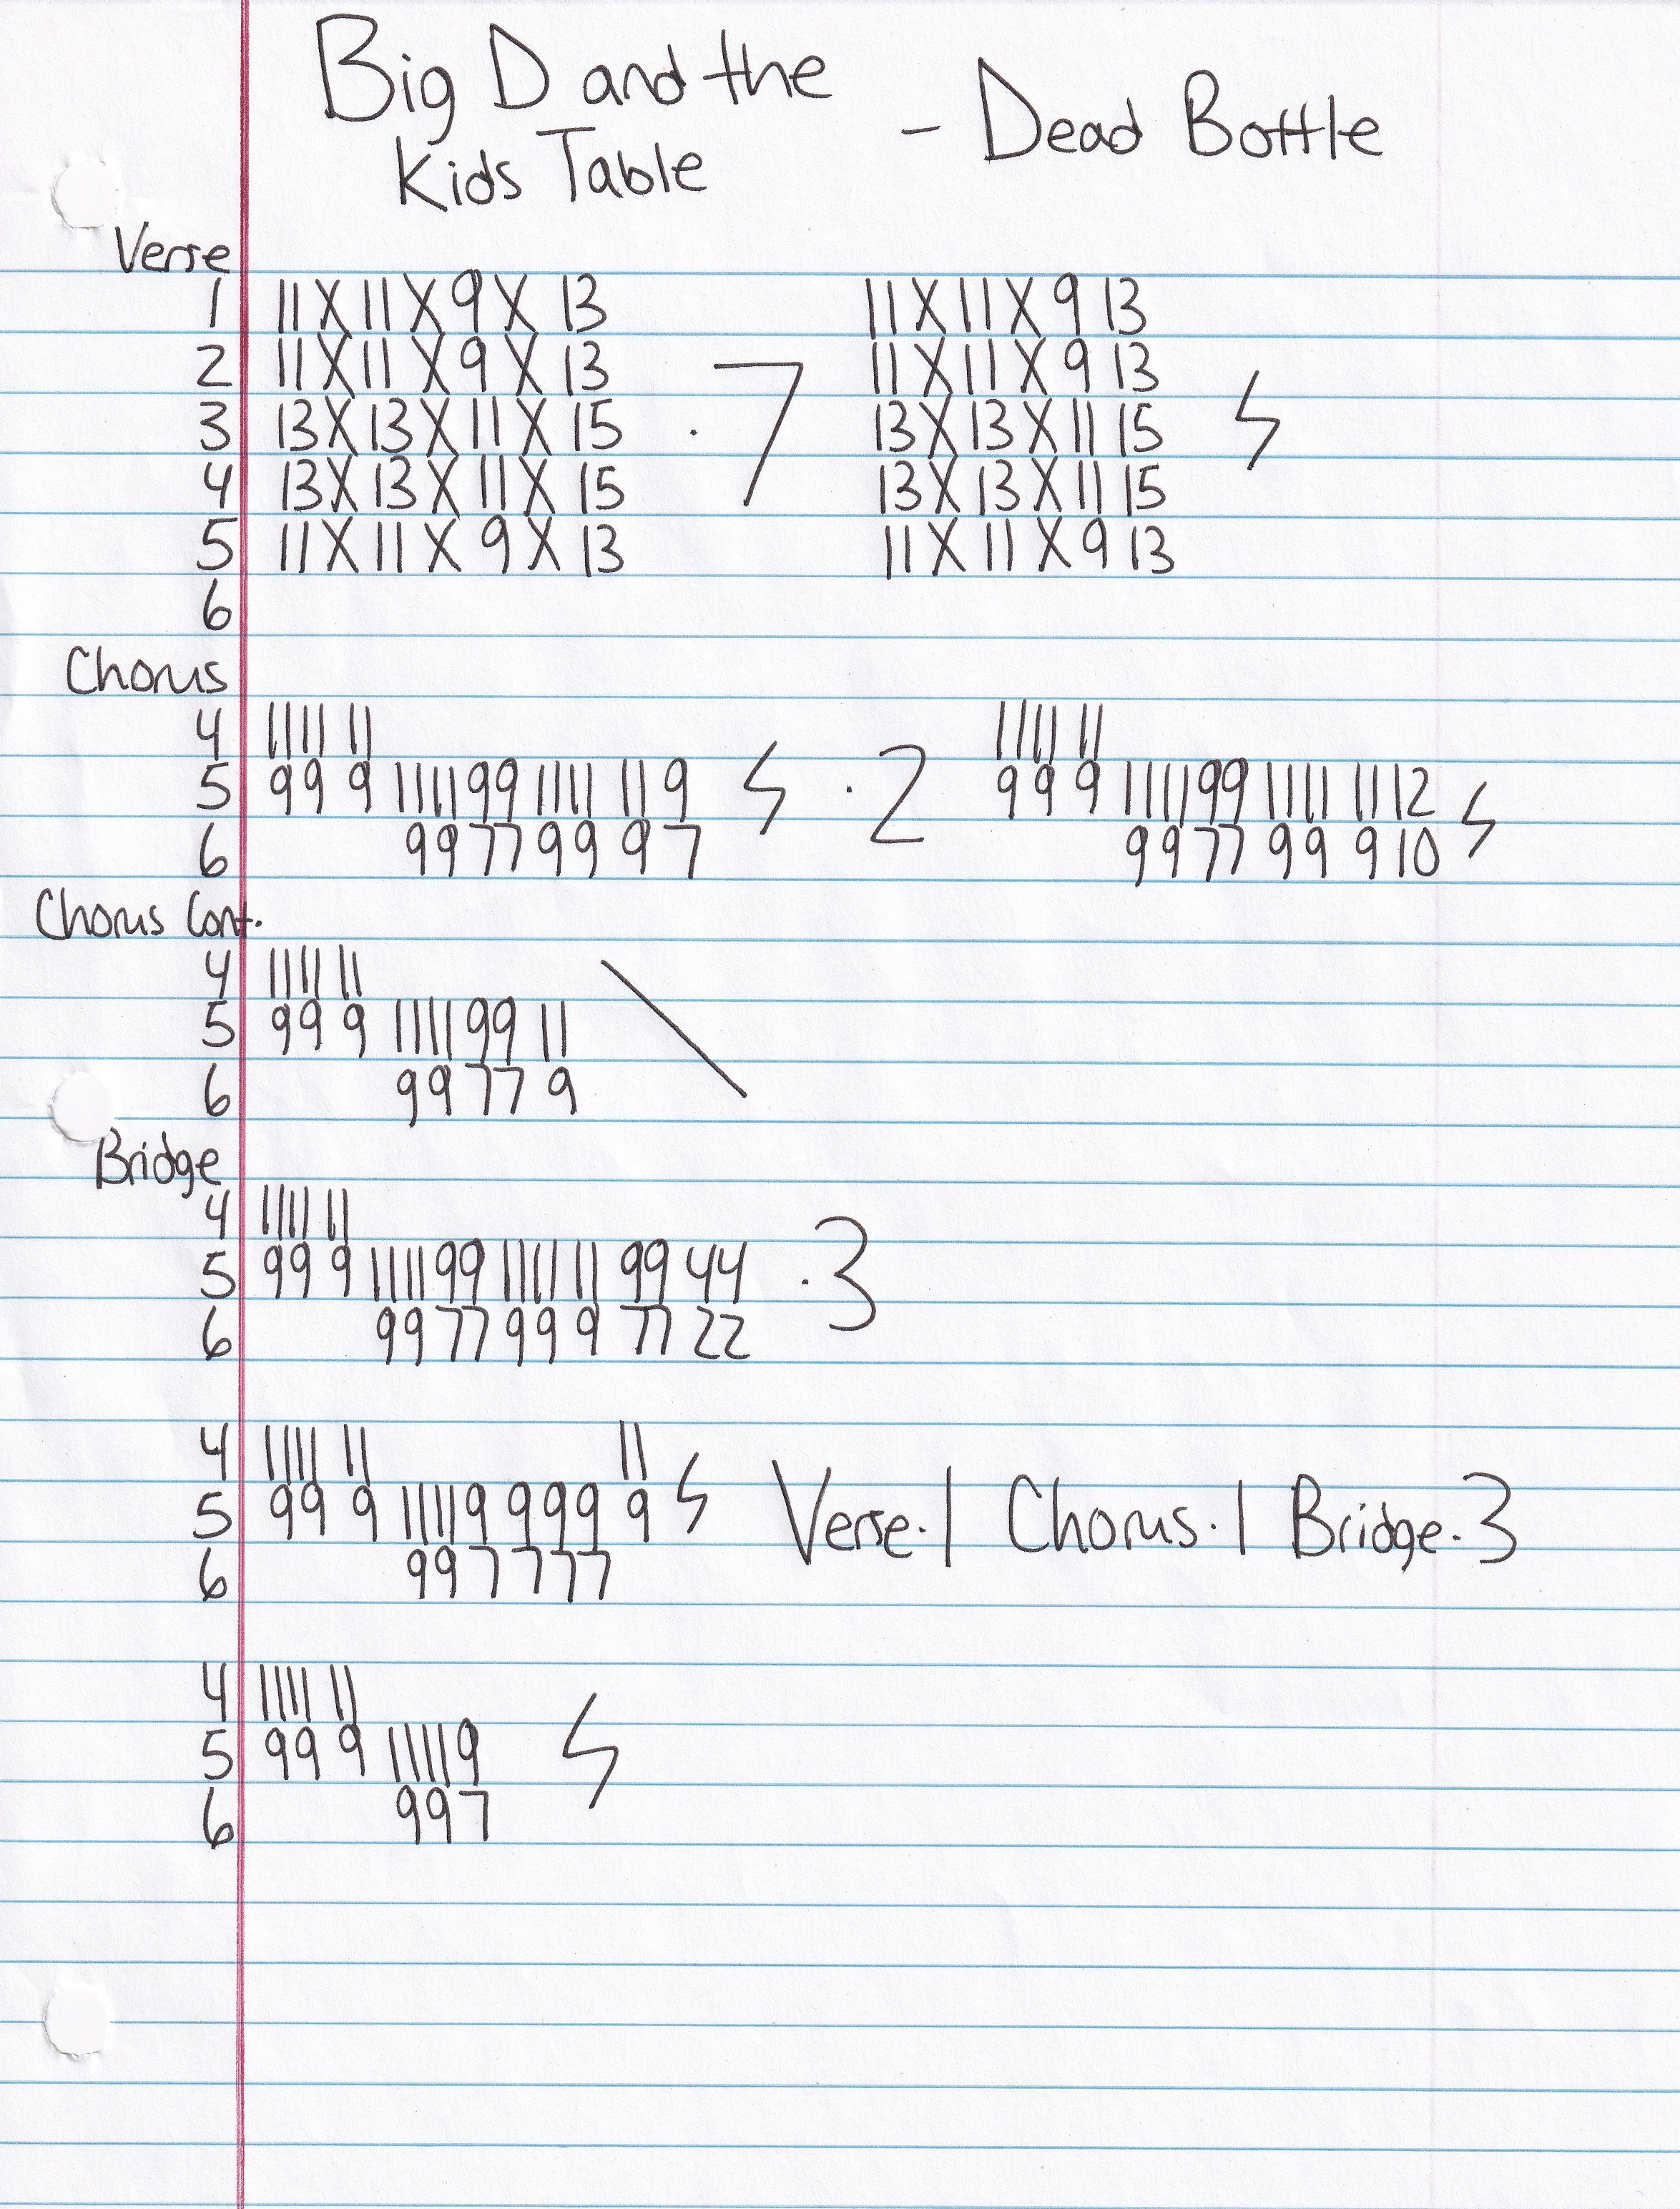 Big D and the
Kids Table - Dead Bottle
Verse
1 11 X 11 X 9 X 13 11 X 11 X 9 13
2 11 X 11 X 9 X 13 11 X 11 X 9 13
3 13 X 13 X 11 X 15 · 7 13 X 13 X 11 15
4 13 X 13 X 11 X 15 13 X 13 X 11 15
5 11 X 11 X 9 X 13 11 X 11 X 9 13
6
Chorus
4 1111 11 1111 11
5 99 9 1111 99 1111 11 9 · 2 99 9 1111 99 1111 11 12
6 99 77 99 9 7 99 77 99 9 10
Chorus Cont.
4 1111 11
5 99 9 1111 99 11
6 99 77 9
Bridge
4 1111 11
5 99 9 1111 99 1111 11 99 44 · 3
6 99 77 99 9 77 22
4 1111 11 11
5 99 9 1111 9 9 99 9 Verse · 1 Chorus · 1 Bridge · 3
6 99 7 7 77
4 1111 11
5 99 9 1111 9
6 99 7